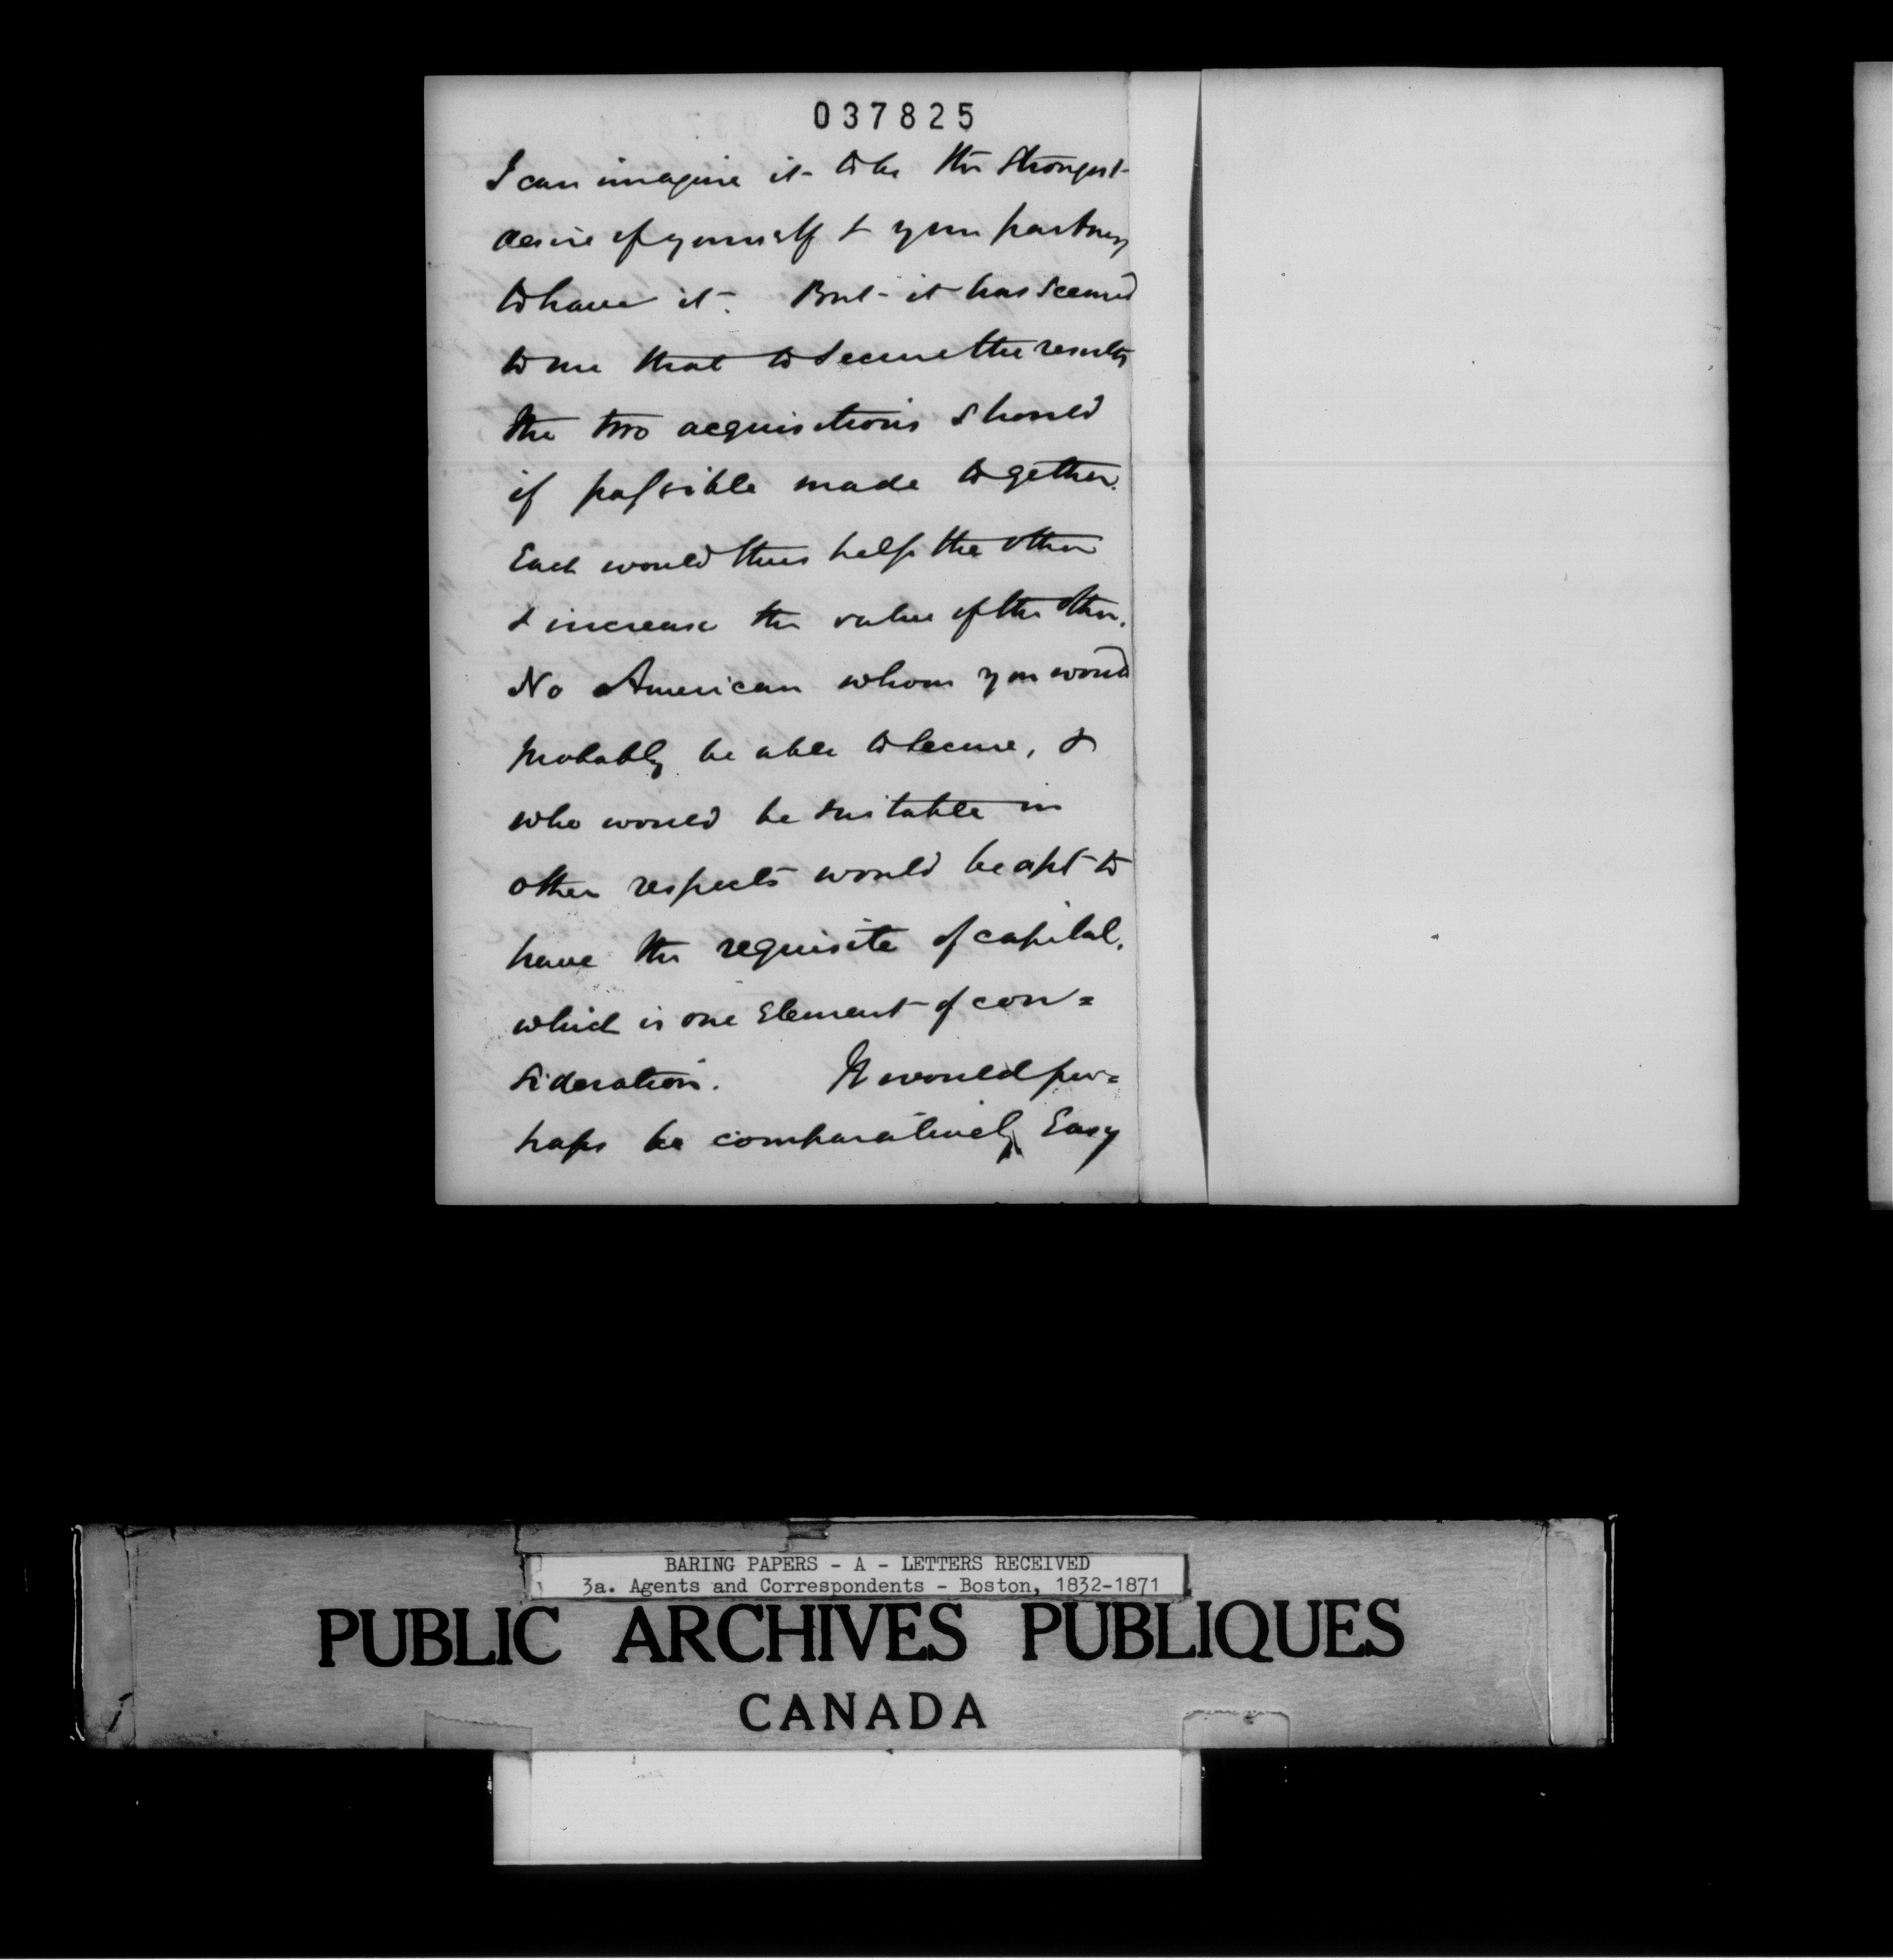 037825
I can imagine it to be the strongest
desire of yourself & your partners
to have it. But it has seemed
to me that to secure the results
the two acquisitions should
if possible made together.
Each would thus help the other
& increase the value of the other.
No American whom you would
probably be able to secure, &
who would be suitable in
other respects would be apt to
have the requisite of capital,
which is one Element of con=
sideration. It would per=
haps be comparatively Easy
BARING PAPERS - A - LETTERS RECEIVED
3a. Agents and Correspondents - Boston, 1832-1871
PUBLIC ARCHIVES PUBLIQUES
CANADA